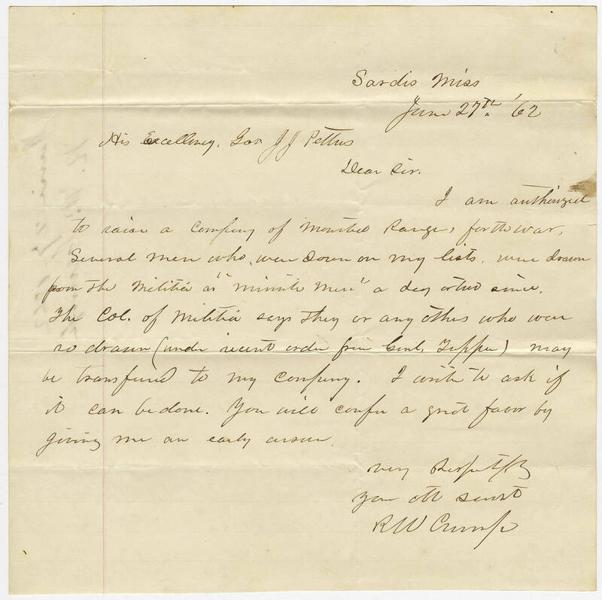 Sardis Miss
June 27th. '62
His Excellency, Gov J J Pettus
Dear Sir.
I am authorized
to raise a Company of Mounted Rangers for the war.
Several men who were down on my lists were drawn
from the Militia as "minute men" a day or two since.
The Col. of Militia says they or any others who were
so drawn (under recent order from Genl. Tupper) may
be transfered to my Company. I write to ask if
it can be done. You will confer a great favor by
giving me an early answer.
Very Respectfly
Your obt servt
R W Crump